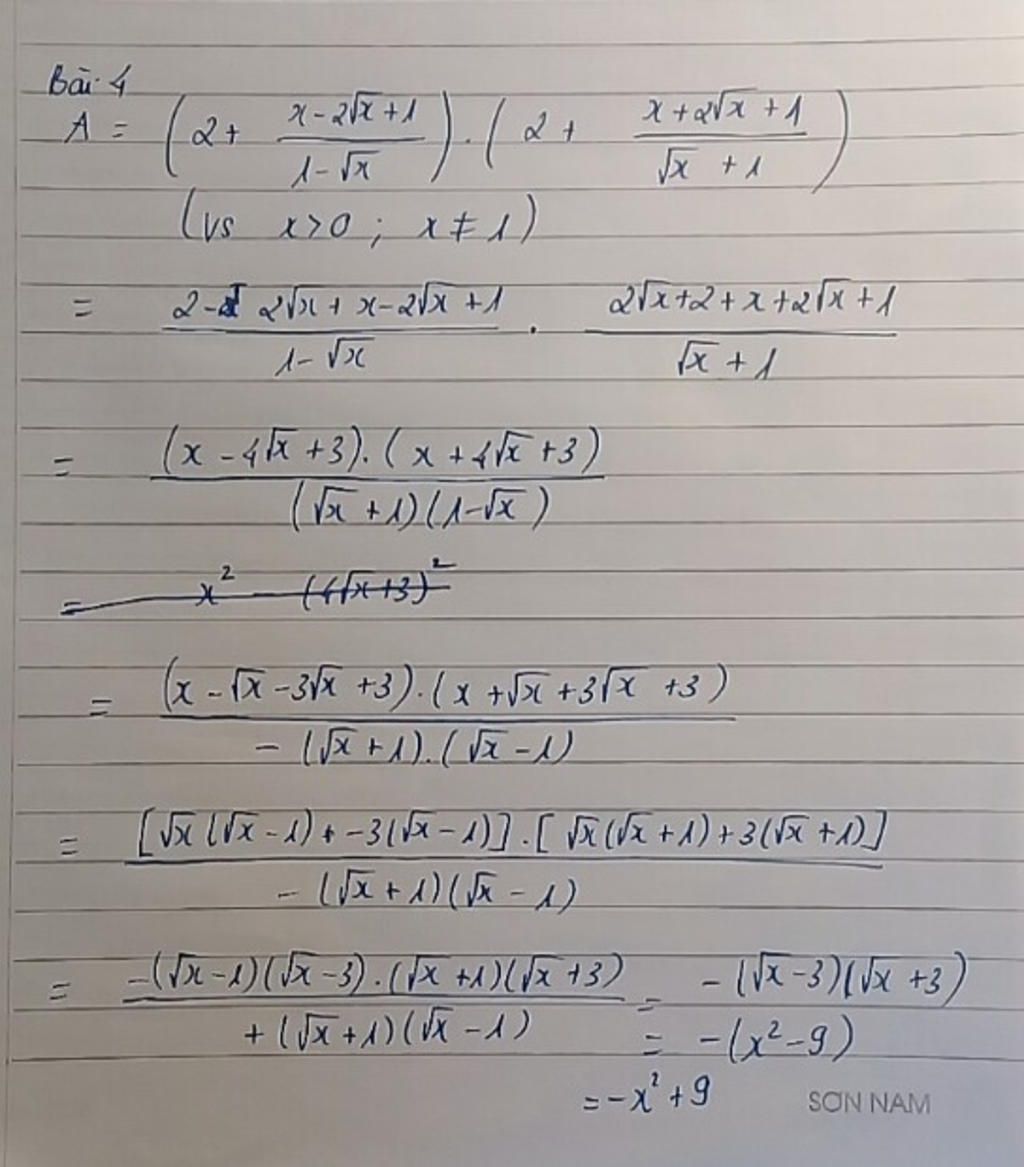 Bài 4
A = (2 + \frac{x-2√x+1}{1-√x}) . (2 + \frac{x+2√x+1}{√x+1})
(vs x>0 ; x≠1)
= \frac{2- 2√x + x-2√x+1}{1-√x} . \frac{2√x+2+x+2√x+1}{√x+1}
= \frac{(x-4√x+3).(x+4√x+3)}{(√x+1)(1-√x)}
= x² - (4√x+3)²
= \frac{(x-√x-3√x+3).(x+√x+3√x+3)}{-(√x+1).(√x-1)}
= \frac{[√x(√x-1)+-3(√x-1)].[√x(√x+1)+3(√x+1)]}{-(√x+1)(√x-1)}
= \frac{-(√x-1)(√x-3).(√x+1)(√x+3)}{+(√x+1)(√x-1)} = -(√x-3)(√x+3)
= -(x²-9)
= -x²+9
SƠN NAM